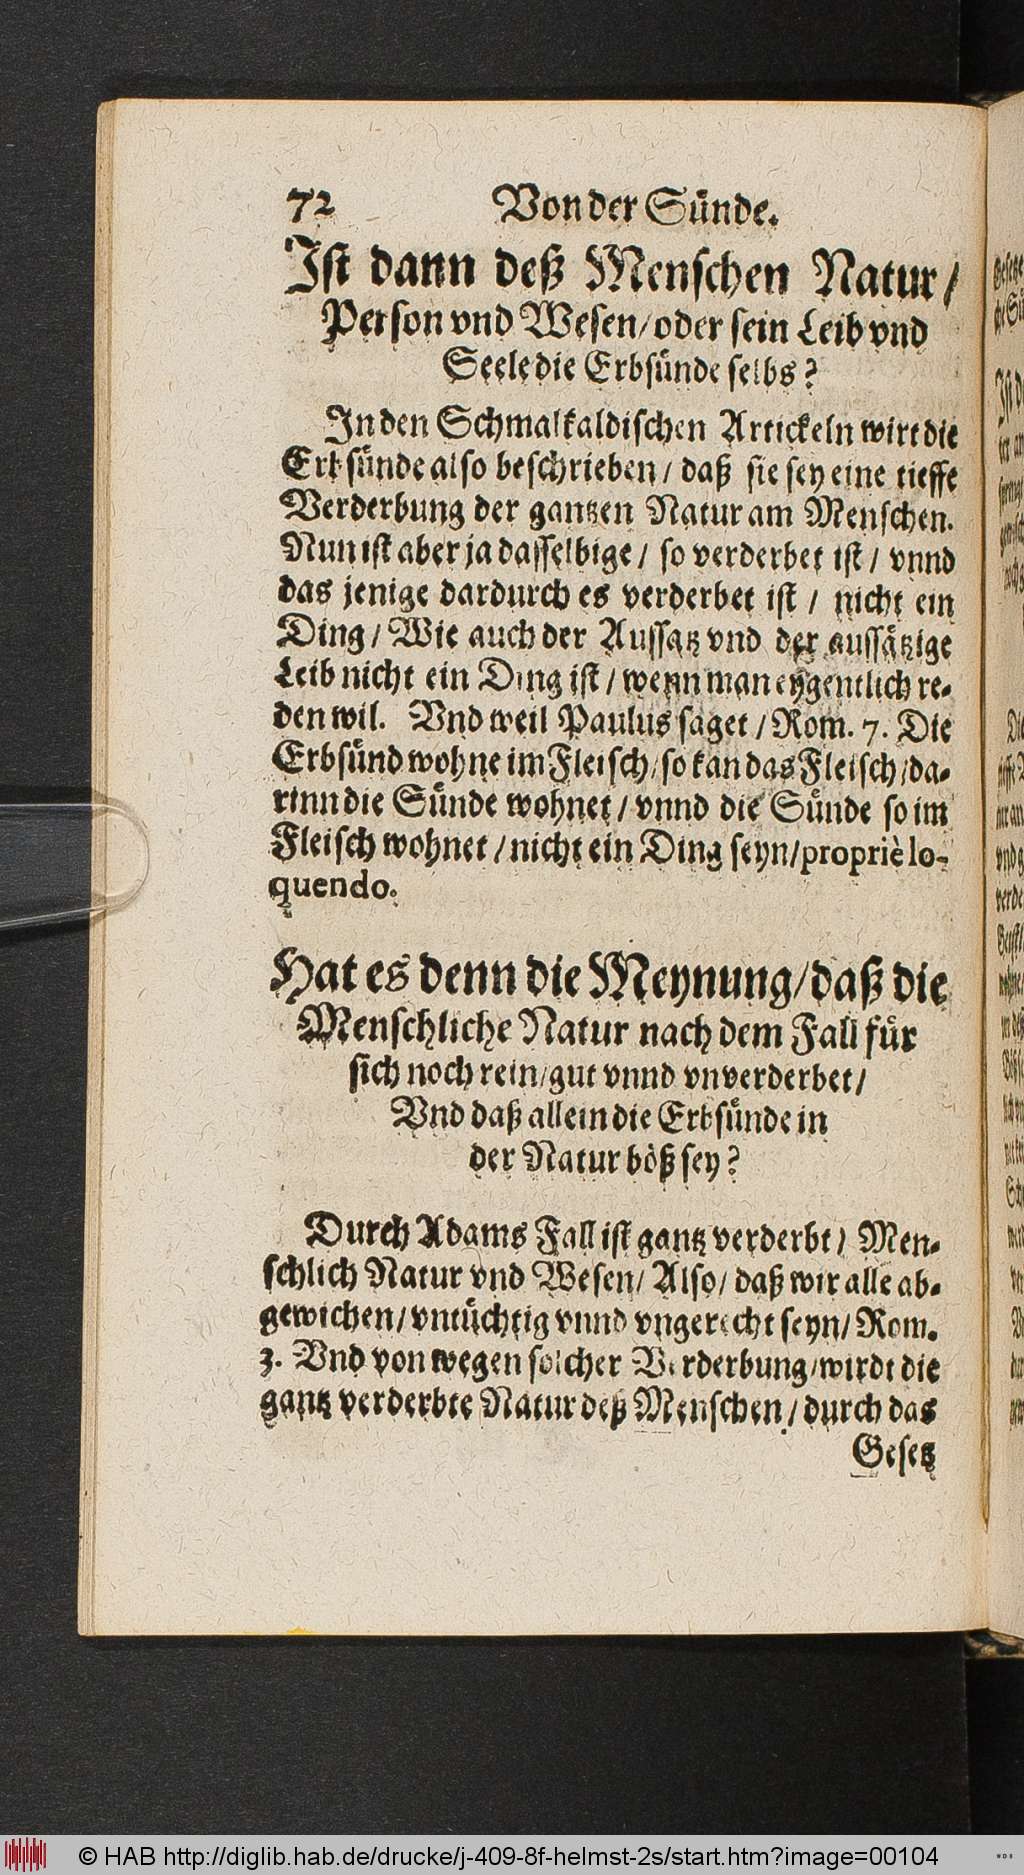 72 Von der Sünde.
Ist dann deß Menschen Natur /
Person vnd Wesen / oder sein Leib vnd
Seele die Erbsünde selbs?
In den Schmalkaldischen Artickeln wirt die
Erbsünde also beschrieben / daß sie sey eine tieffe
Verderbung der gantzen Natur am Menschen.
Nun ist aber ja dasselbige / so verderbet ist / vnnd
das jenige dardurch es verderbet ist / nicht ein
Ding / Wie auch der Aussatz vnd der aussätzige
Leib nicht ein Ding ist / wenn man eygentlich re-
den wil. Vnd weil Paulus saget / Rom. 7. Die
Erbsünd wohne im Fleisch / so kan das Fleisch / da-
rinn die Sünde wohnet / vnnd die Sünde so im
Fleisch wohnet / nicht ein Ding seyn / propriè lo-
quendo.
Hat es denn die Meynung / daß die
Menschliche Natur nach dem Fall für
sich noch rein / gut vnnd vnverderbet /
Vnd daß allein die Erbsünde in
der Natur böß sey?
Durch Adams Fall ist gantz verderbt / Men-
schlich Natur vnd Wesen / Also / daß wir alle ab-
gewichen / vntüchtig vnnd vngerecht seyn / Rom.
3. Vnd von wegen solcher Verderbung / wirdt die
gantz verderbte Natur deß Menschen / durch das
Gesetz
© HAB http://diglib.hab.de/drucke/j-409-8f-helmst-2s/start.htm?image=00104